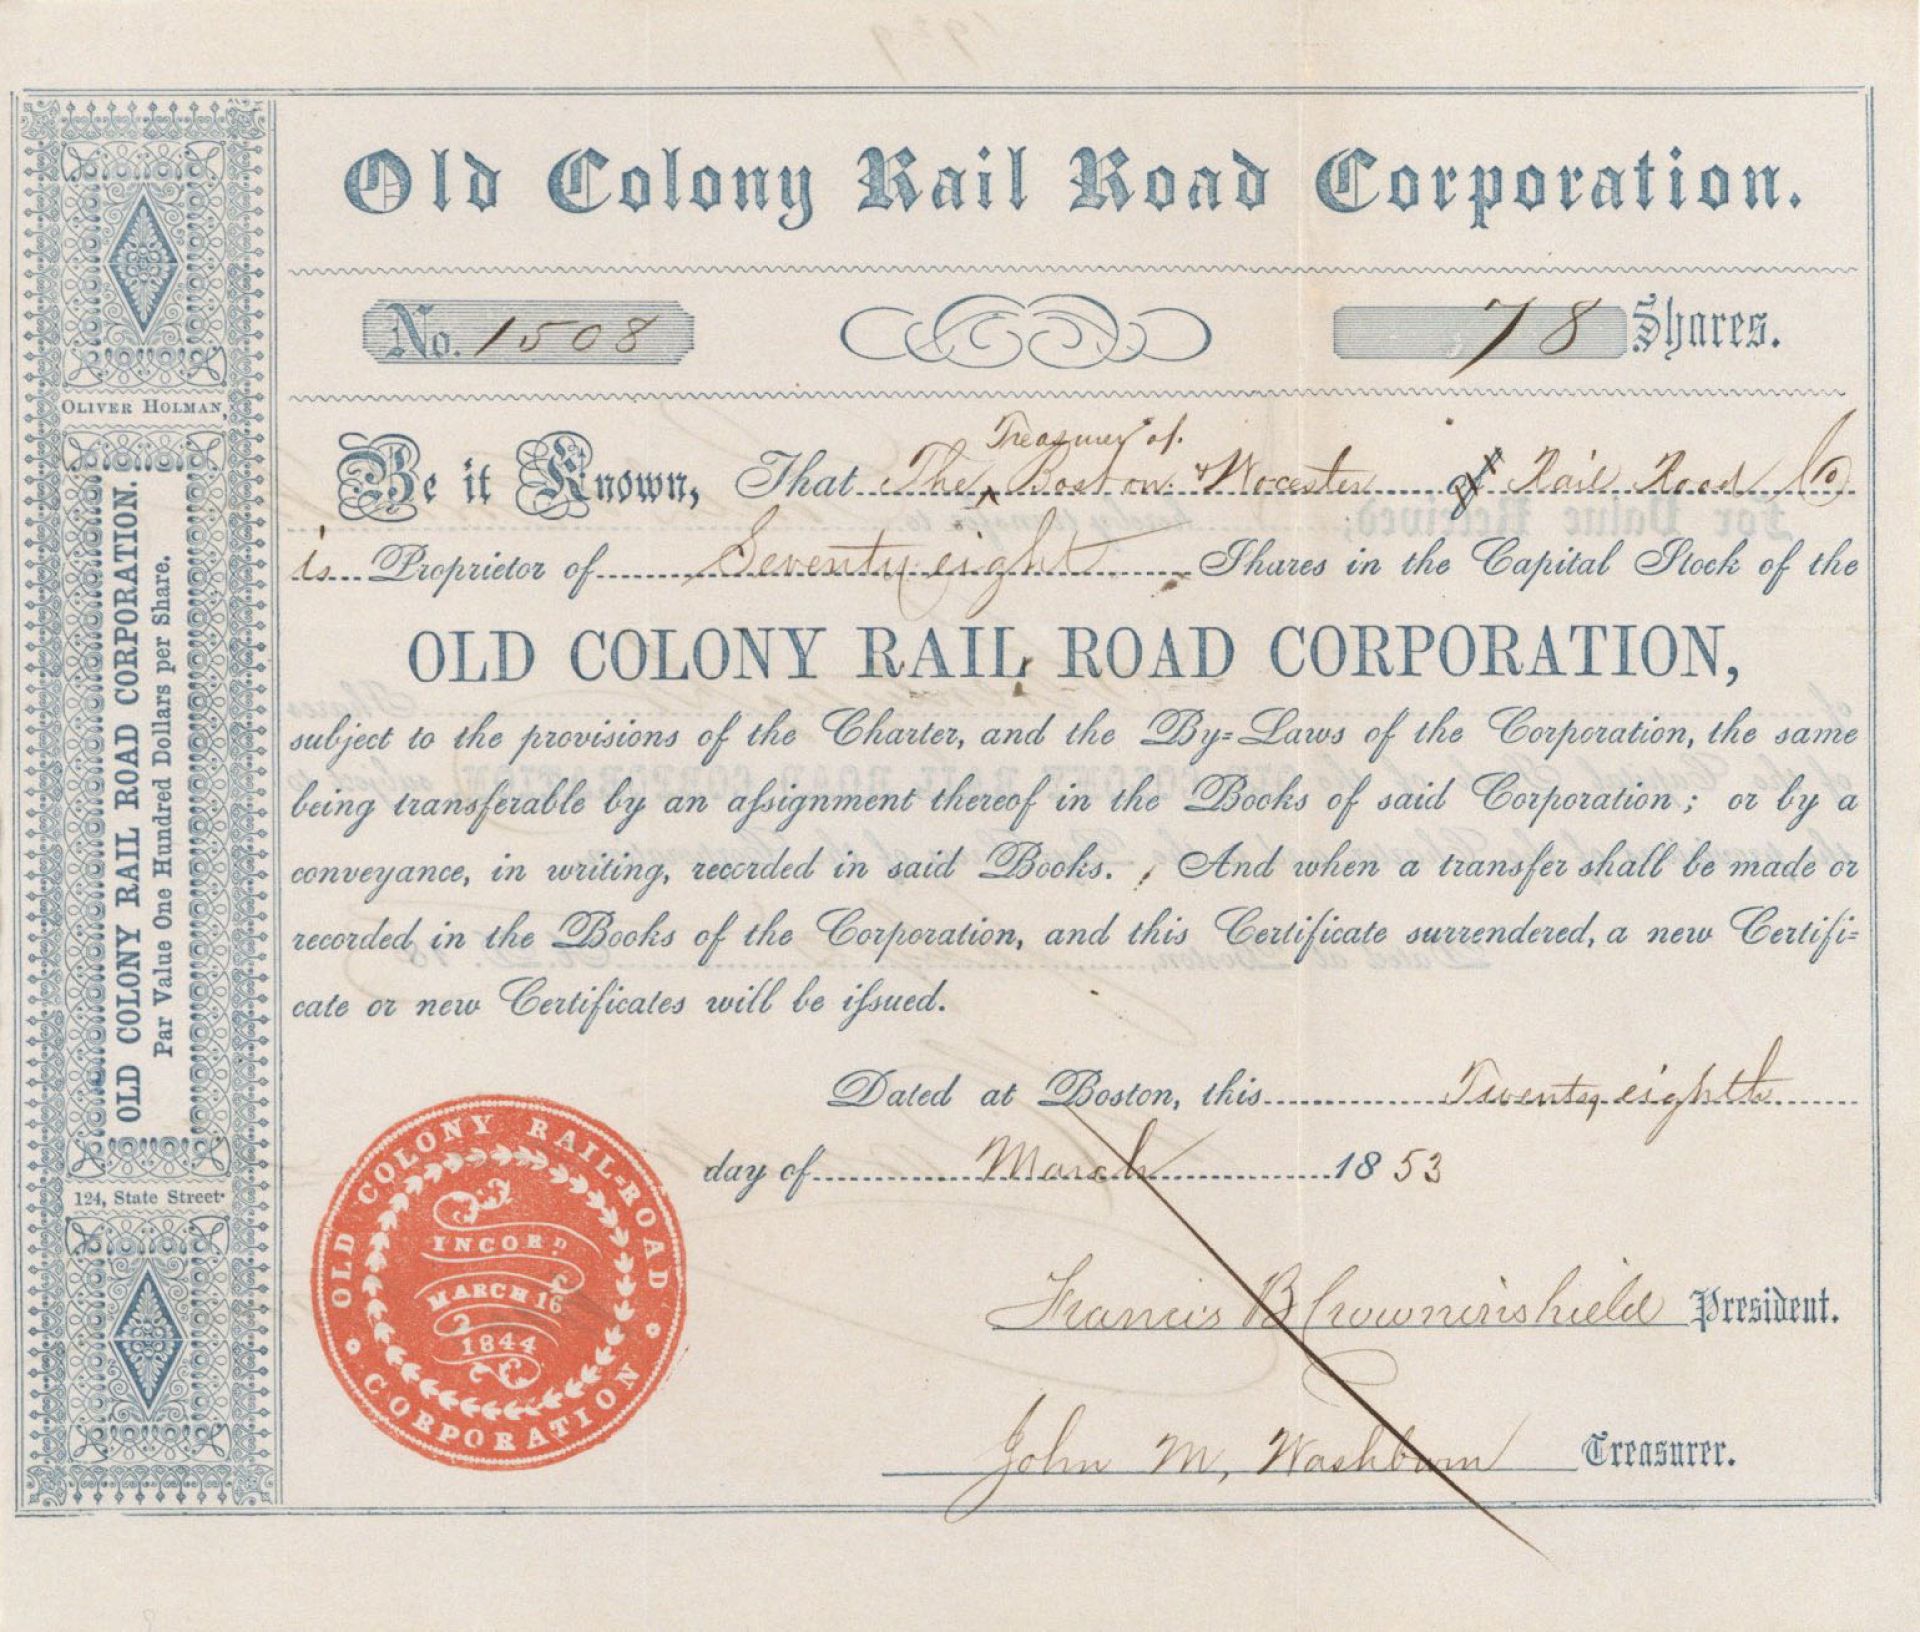 Old Colony Rail Road Corporation.
No. 1508
78 Shares.
OLIVER HOLMAN,
OLD COLONY RAIL ROAD CORPORATION.
Par Value One Hundred Dollars per Share.
124, State Street
Treasurer of.
Be it Known, That The ^ Boston & Worcester Rail Road Co
is Proprietor of Seventy eight Shares in the Capital Stock of the
OLD COLONY RAIL ROAD CORPORATION,
subject to the provisions of the Charter, and the By=Laws of the Corporation, the same
being transferable by an assignment thereof in the Books of said Corporation; or by a
conveyance, in writing, recorded in said Books. And when a transfer shall be made or
recorded in the Books of the Corporation, and this Certificate surrendered, a new Certifi=
cate or new Certificates will be issued.
Dated at Boston, this Twenty eighth
day of March 1853
OLD COLONY RAIL-ROAD
CORPORATION
INCORD
MARCH 16
1844
Francis B Crowninshield President.
John M, Washburn Treasurer.